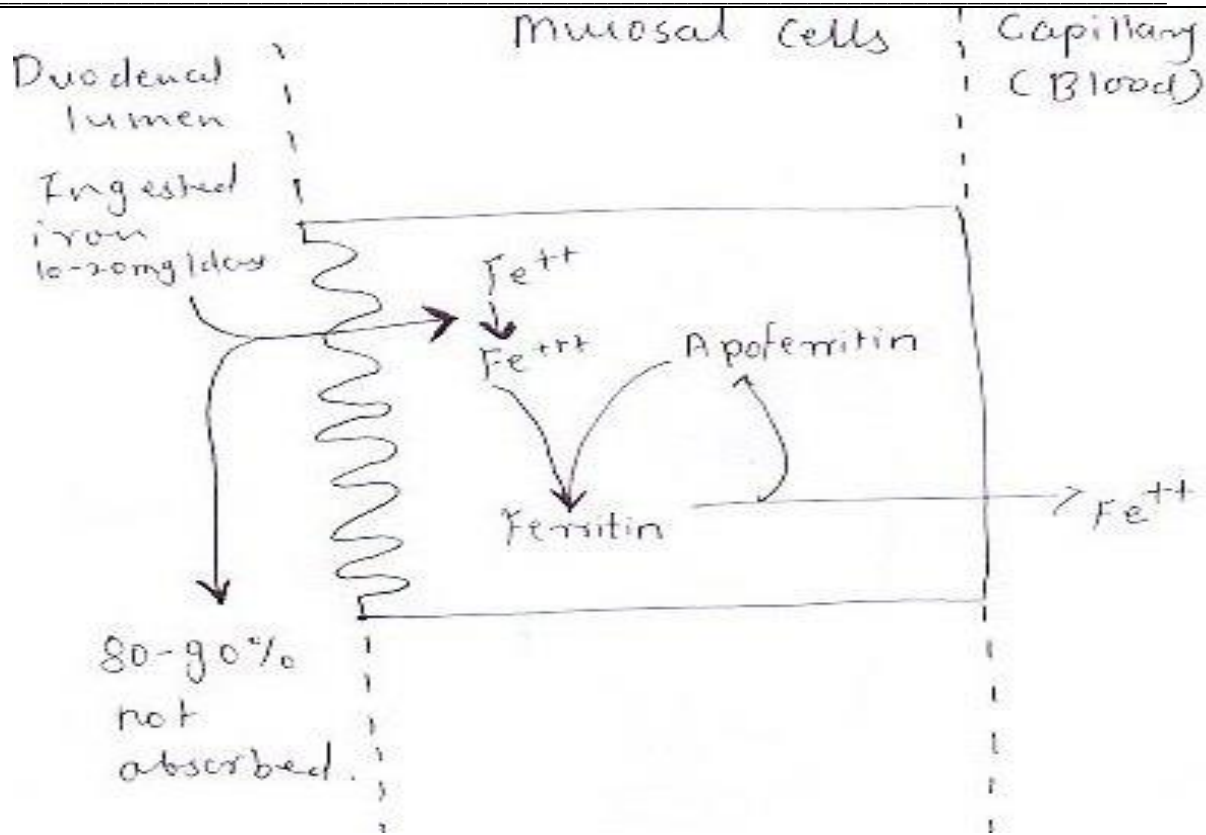 Duodenal
lumen
Mucosal Cells
Capillary
(Blood)
Ingested
iron
10-20mg/day
Fe++
Fe+++
Apoferritin
Ferritin
Fe++
80-90%
not
absorbed.